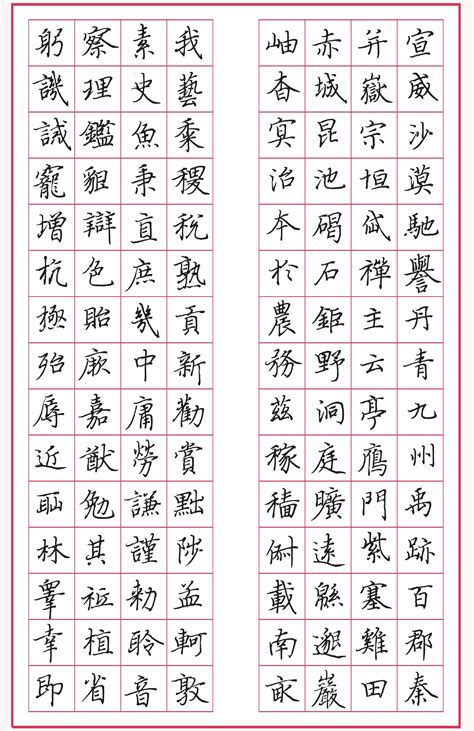 宣威沙漠馳譽丹青九州禹跡百郡秦
并嶽宗恒岱禪主云亭鴈門紫塞雞田
赤城昆池碣石鉅野洞庭曠遠緜邈巖
岫杳冥治本於農務茲稼穡俶載南畝
我藝黍稷稅熟貢新勸賞黜陟孟軻敦
素史魚秉直庶幾中庸勞謙謹勅聆音
察理鑑貌辯色貽厥嘉猷勉其祗植省
躬譏誡寵增抗極殆辱近耻林皋幸即